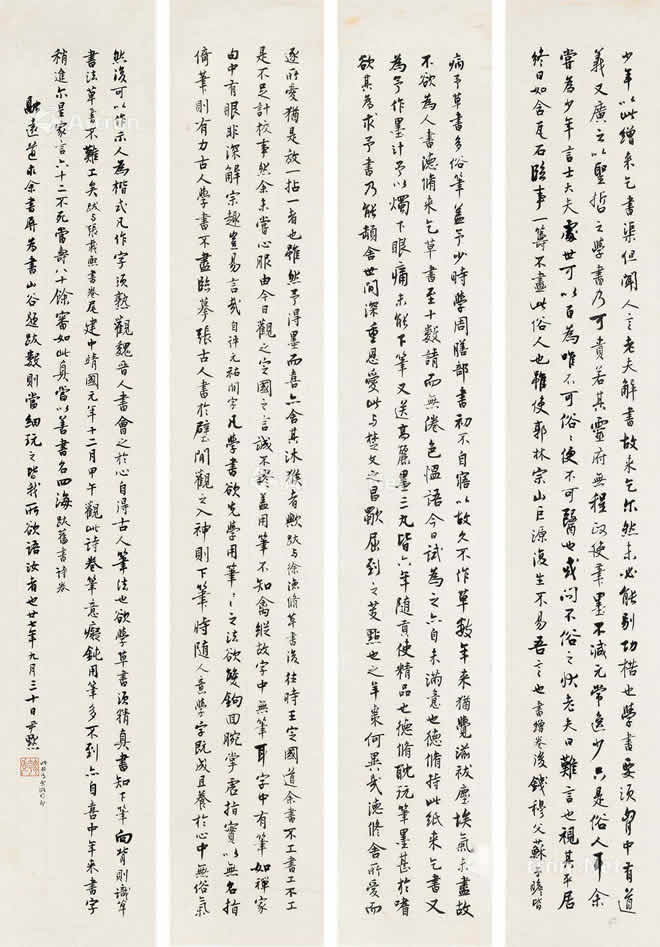 少年以此繒來乞書渠但聞人言老夫解書故來乞尔然未必能别功楛也學書要須胷中有道
義又廣之以聖哲之學書乃可貴若其靈府無程政使筆墨不減元常逸少只是俗人耳余
嘗爲少年言士大夫處世可以百爲唯不可俗俗便不可醫也或問不俗之狀老夫曰難言也視其平居
終日如含瓦石臨事一籌不畫此俗人也雖使郭林宗山巨源復生不易吾言也書繒卷後錢穆父蘇子瞻皆
病予草書多俗筆蓋予少時學周膳部書初不自寤以故久不作草數年來猶覺湔祓塵埃氣未盡故
不欲爲人書德脩來乞草書至十數請而無倦色愠語今日試爲之亦自未滿意也德脩持此紙來乞書又
爲予作墨計予以燭下眼痛未能下筆又送高麗墨三丸皆六年隨貢使精品也德脩耽玩筆墨甚於嗜
欲其爲求予書乃能頿舍世間深重恩愛此与楚文之昌歜屈到之芰點也之羊棗何異哉德脩舍所愛而
逐所愛猶是放一拈一者也雖然予得墨而喜亦含其沐猴者歟跋与徐德脩草書後往時王定國道余書不工書工不工
是不足計挍事然余未嘗心服由今日觀之定國之言誠不謬蓋用筆不知禽縱故字中無筆耳字中有筆如禪家
句中有眼非深解宗趣豈易言哉自評元祐間字凡學書欲先學用筆用筆之法欲雙鉤回腕掌虛指實以無名指
倚筆則有力古人學書不盡臨摹張古人書於壁間觀之入神則下筆時隨人意學字既成且養於心中無俗氣
然後可以作示人爲楷式凡作字須熟觀魏晉人書會之於心自得古人筆法也欲學草書須精真書知下筆向背則識草
書法草書不難工矣跋与張載熙書卷尾建中靖國元年十二月甲午觀此詩卷筆意癡鈍用筆多不到亦自喜中年來書字
稍進尔星家言六十二不死當壽八十餘審如此真當以善書名四海跋舊書詩卷
馱遠道求余書屏爲書山谷題跋數則當細玩之皆我所欲語汝者也廿七年九月三十日尹默